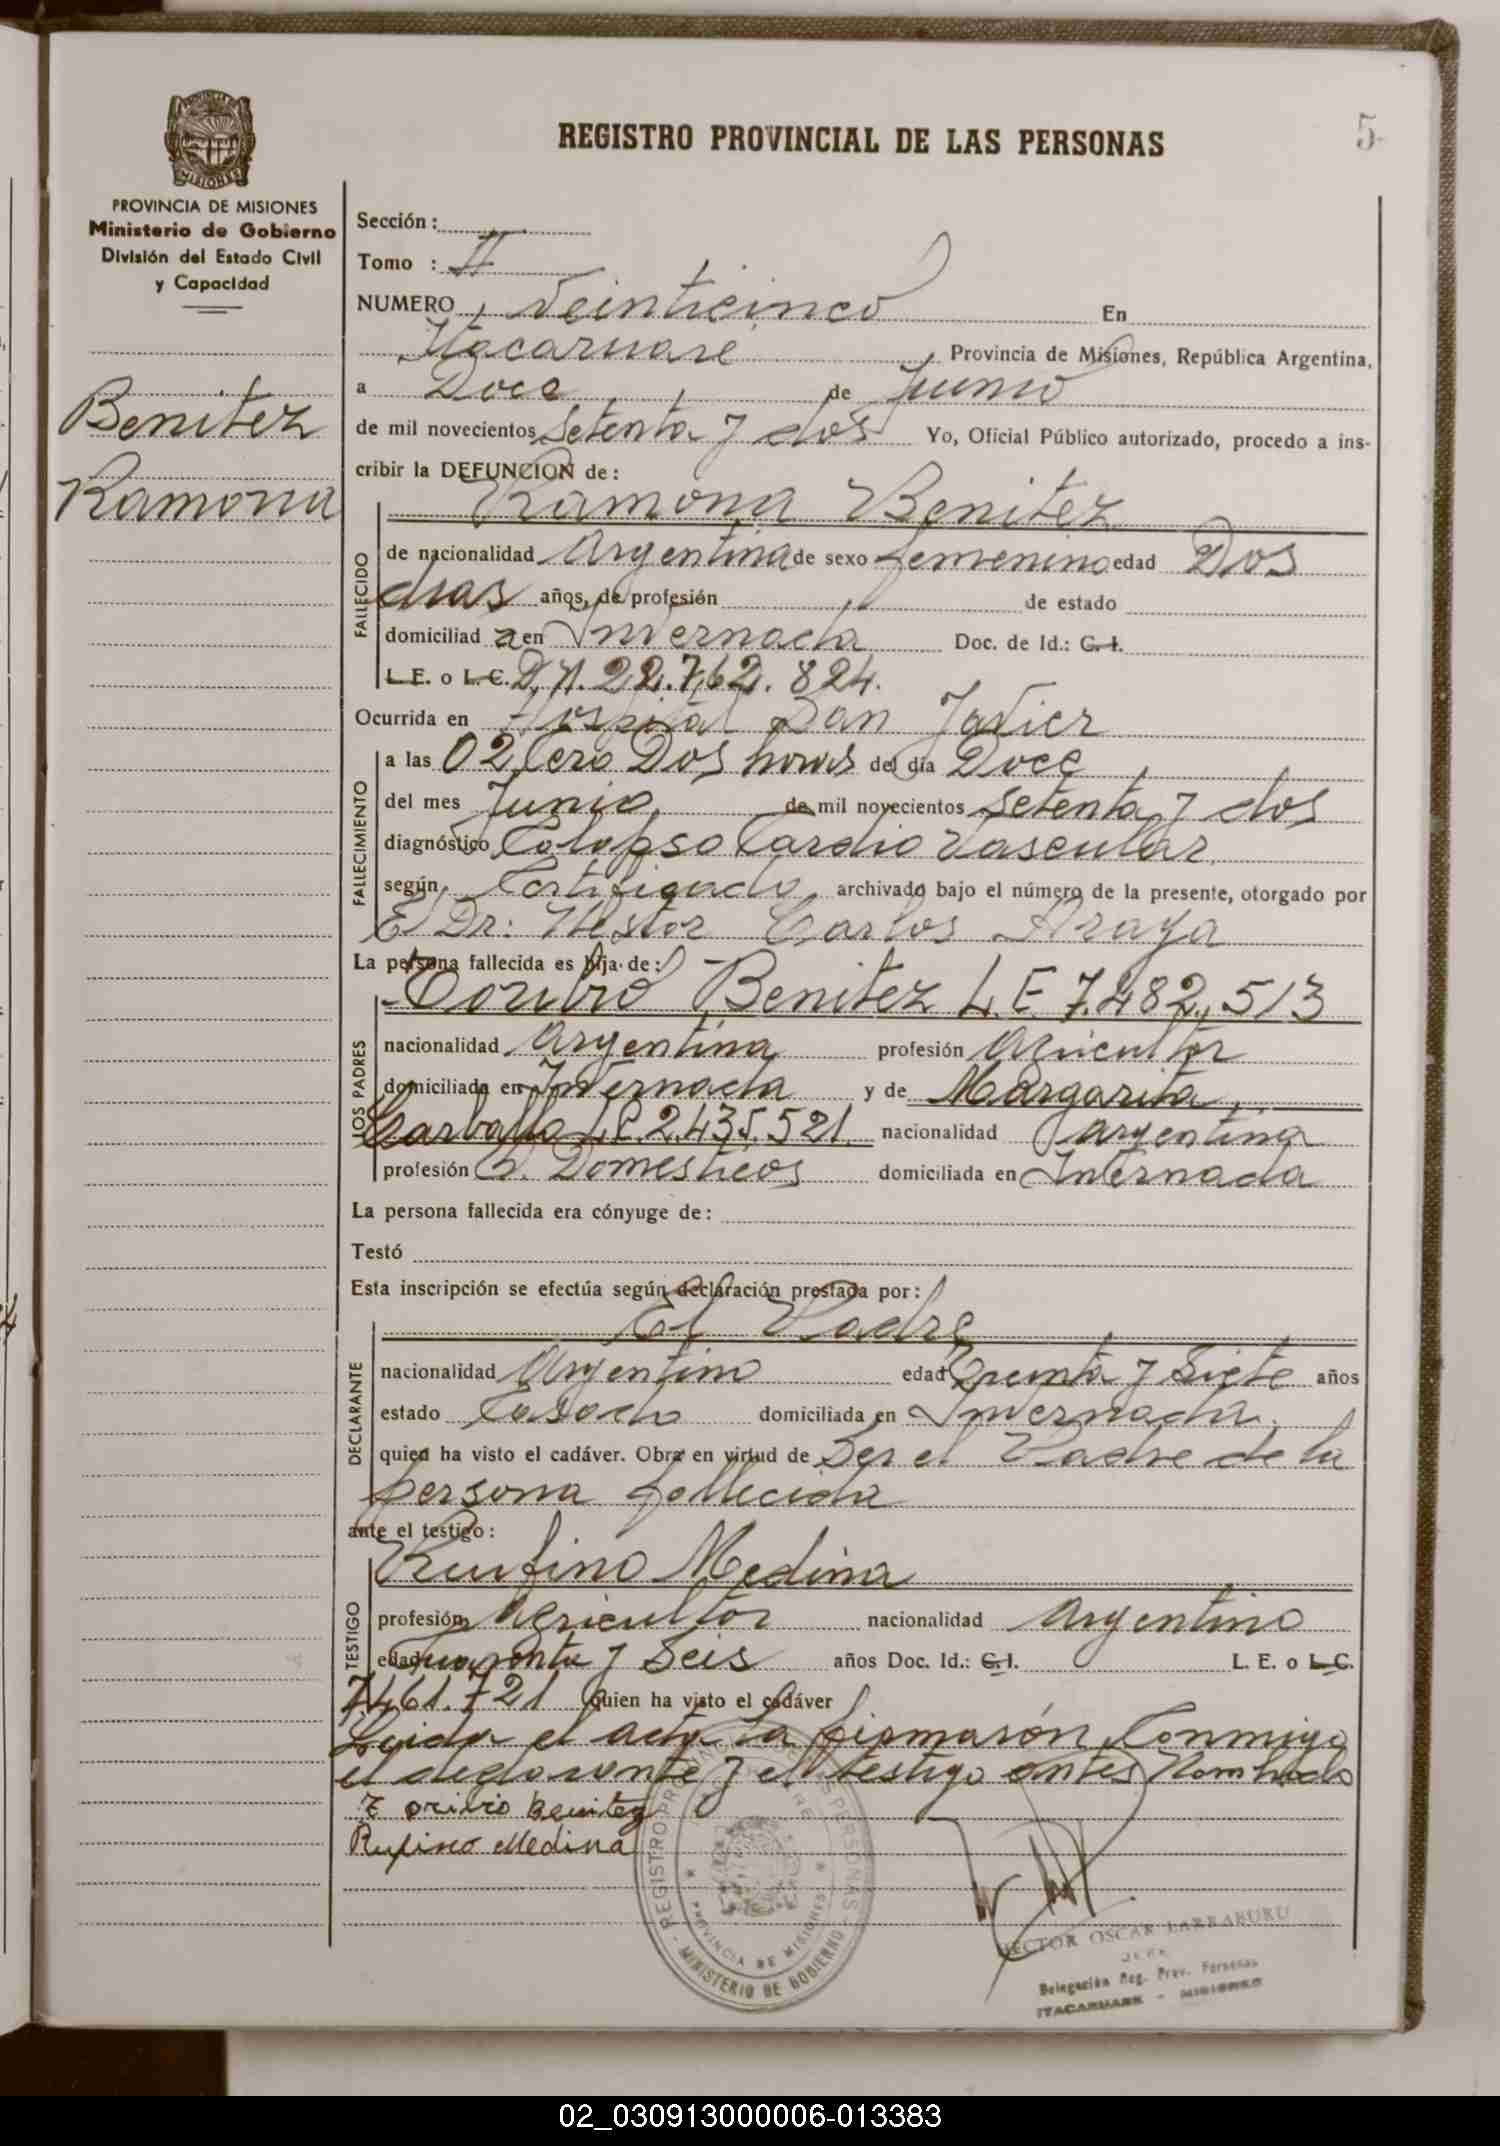 REGISTRO PROVINCIAL DE LAS PERSONAS
5
PROVINCIA DE MISIONES
Ministerio de Gobierno
División del Estado Civil
y Capacidad
Benitez
Ramona
Sección:
Tomo : II
NUMERO Veinticinco En
Itacaruare Provincia de Misiones, República Argentina,
a Doce de Junio
de mil novecientos Setenta y dos Yo, Oficial Público autorizado, procedo a ins-
cribir la DEFUNCION de:
Ramona Benitez
FALLECIDO
de nacionalidad Argentina de sexo femenino edad Dos
dias años, de profesión de estado
domiciliad a en Invernada Doc. de Id.: C. I.
L. E. o L. C. D.N. 22.762.824.
Ocurrida en Hospital San Javier
FALLECIMIENTO
a las 02 Cero Dos horas del día Doce
del mes Junio de mil novecientos Setenta y dos
diagnóstico Colapso Cardio Vascular
según Certificado archivado bajo el número de la presente, otorgado por
El Dr: Nestor Carlos Araya
La persona fallecida es hija de:
LOS PADRES
Toribio Benitez L.E 7.482.513
nacionalidad Argentina profesión Agricultor
domiciliada en Invernada y de Margarita
Carballo L.C. 2.435.521. nacionalidad Argentina
profesión Q. Domesticos domiciliada en Invernada
La persona fallecida era cónyuge de:
Testó
Esta inscripción se efectúa según declaración prestada por:
El Padre
DECLARANTE
nacionalidad Argentino edad Treinta y Siete años
estado Casado domiciliada en Invernada.
quien ha visto el cadáver. Obra en virtud de Ser el Padre de la
persona fallecida
ante el testigo:
Rufino Medina
TESTIGO
profesión Agricultor nacionalidad Argentino
edad Cuarenta y Seis años Doc. Id.: C. I. L. E. o L. C.
7.461.721 quien ha visto el cadáver
Leida el acta la firmarón Conmigo
el declarante y el testigo antes Nombrado
Toribio Benitez
Rufino Medina
REGISTRO PROVINCIAL DE LAS PERSONAS
PROVINCIA DE MISIONES
MINISTERIO DE GOBIERNO
HECTOR OSCAR LARRABURU
JEFE
Delegación Reg. Prov. Personas
ITACARUARE - MISIONES
02_030913000006-013383